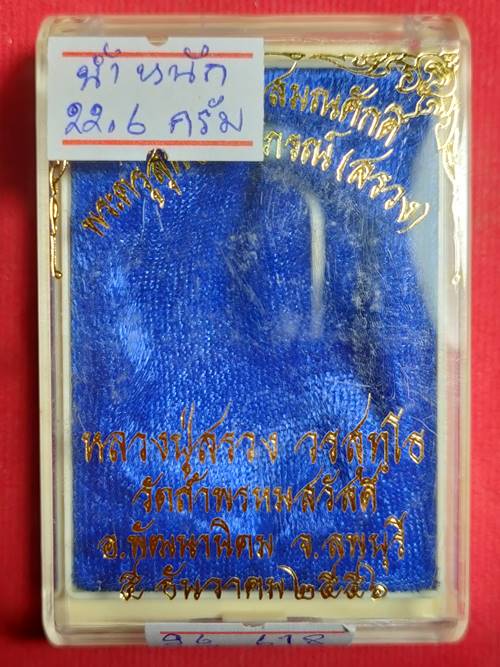 น้ำหนัก
22.6 ครัม
สมณศักดิ์
(สรวง)
หลวงปู่สรวง วรสุทฺโธ
วัดถ้ำพรหมสวัสดี
อ.พัฒนานิคม จ.ลพบุรี
๕ ธันวาคม ๒๕๕๖